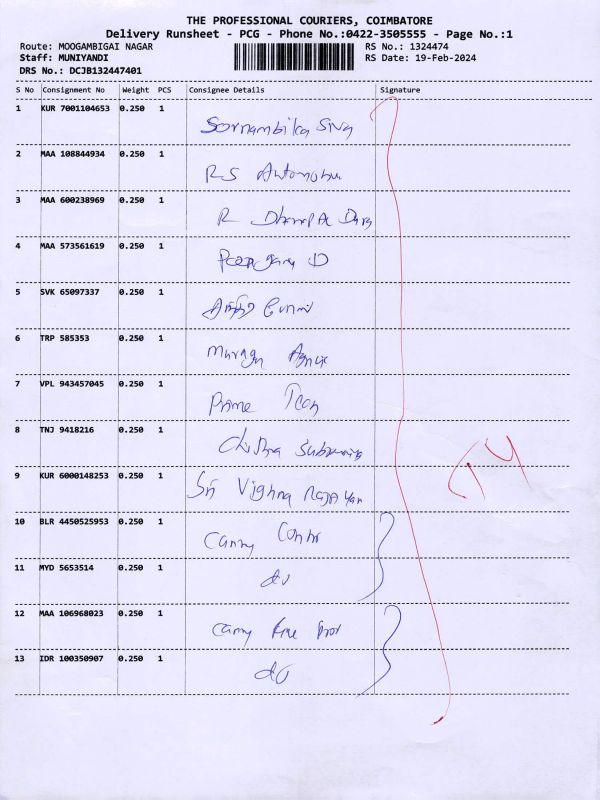 THE PROFESSIONAL COURIERS, COIMBATORE
Delivery Runsheet - PCG - Phone No.:0422-3505555 - Page No.:1
Route: MOOGAMBIGAI NAGAR RS No.: 1324474
Staff: MUNIYANDI RS Date: 19-Feb-2024
DRS No.: DCJB132447401
S No Consignment No Weight PCS Consignee Details Signature
1 KUR 7001104653 0.250 1
Sornambika Siva
2 MAA 108844934 0.250 1
RS
3 MAA 600238969 0.250 1
R
4 MAA 573561619 0.250 1
D
5 SVK 65097337 0.250 1
6 TRP 585353 0.250 1
Murugan
7 VPL 943457045 0.250 1
Prime
8 TNJ 9418216 0.250 1
Chithra
9 KUR 6000148253 0.250 1
Sri Vighna
10 BLR 4450525953 0.250 1
11 MYD 5653514 0.250 1
do
12 MAA 106968023 0.250 1
13 IDR 100350907 0.250 1
do